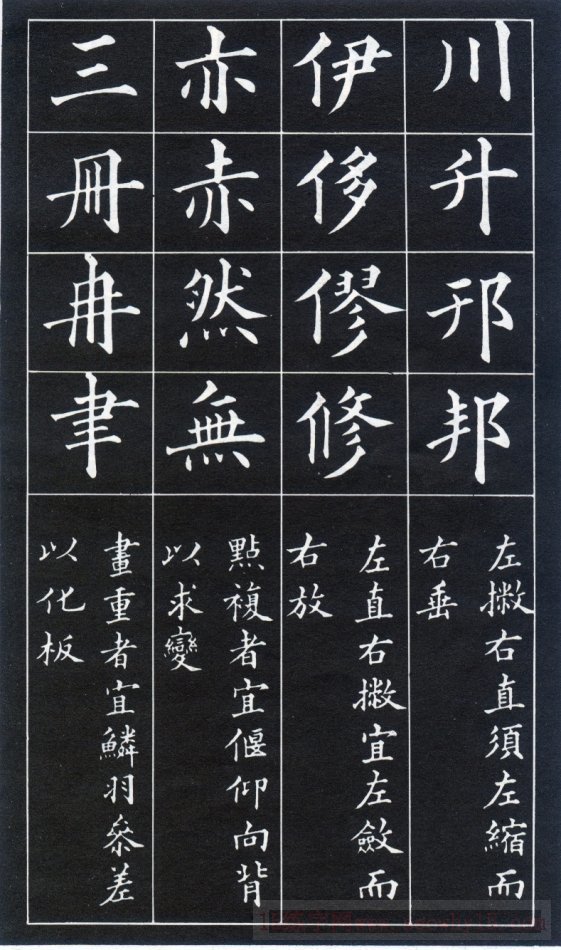 川升邦
左撇右直須左縮而
右垂
伊侈僇修
左直右撇宜左斂而
右放
亦赤然無
點複者宜偃仰向背
以求變
三冊冉聿
畫重者宜鱗羽參差
以化板